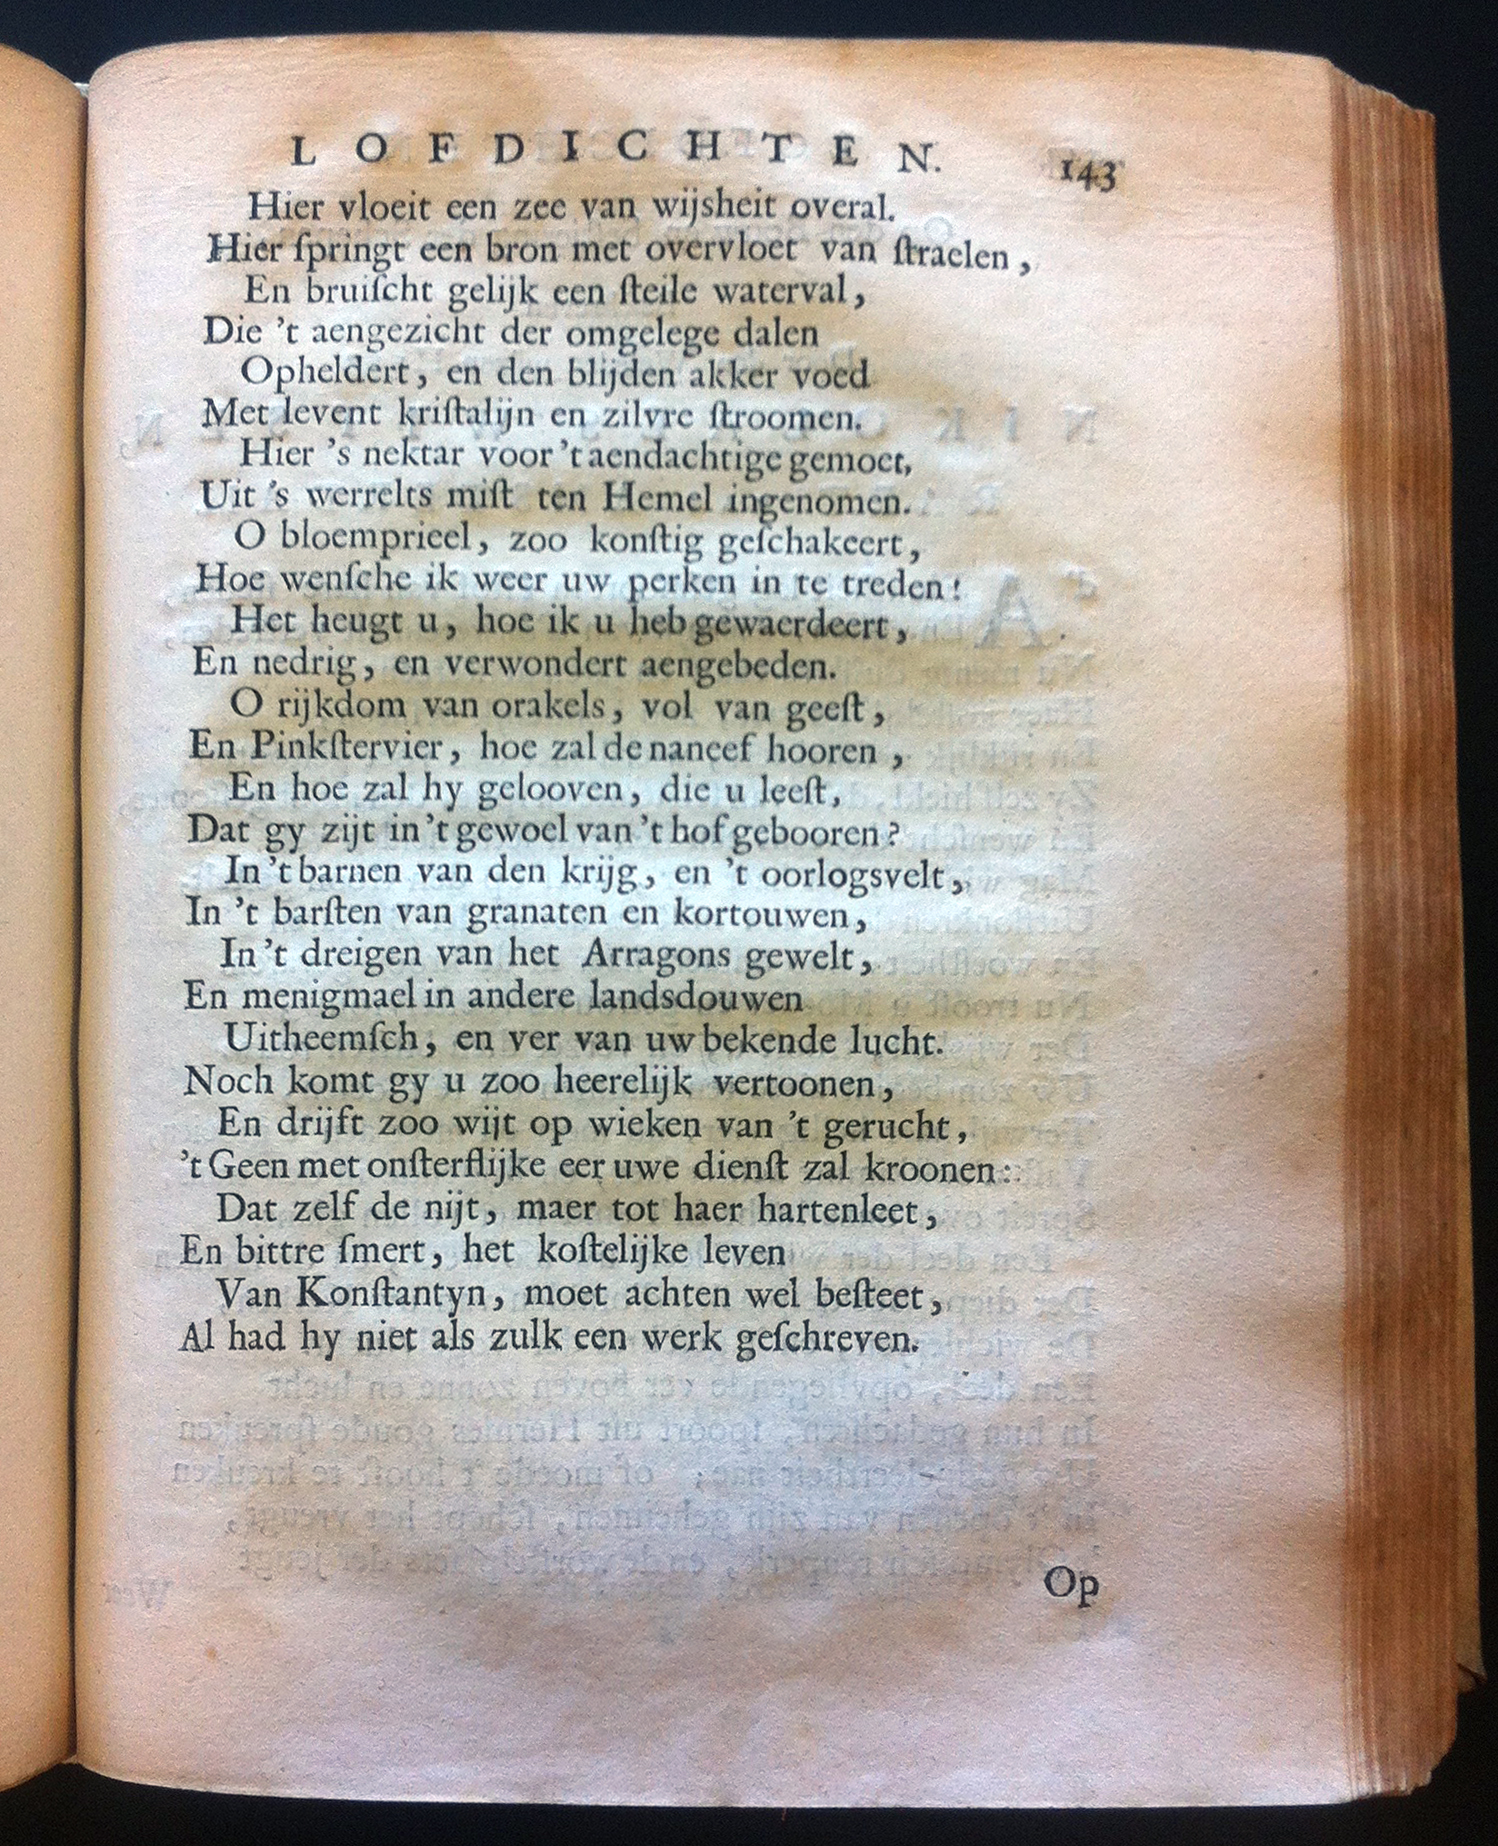 LOFDICHTEN. 143
Hier vloeit een zee van wijsheit overal.
Hier ſpringt een bron met overvloet van ſtraelen,
En bruiſcht gelijk een ſteile waterval,
Die 't aengezicht der omgelege dalen
Opheldert, en den blijden akker voed
Met levent kriſtalijn en zilvre ſtroomen.
Hier 's nektar voor 't aendachtige gemoet,
Uit 's werrelts miſt ten Hemel ingenomen.
O bloemprieel, zoo konſtig geſchakeert,
Hoe wenſche ik weer uw perken in te treden!
Het heugt u, hoe ik u heb gewaerdeert,
En nedrig, en verwondert aengebeden.
O rijkdom van orakels, vol van geeſt,
En Pinkſtervier, hoe zal de naneef hooren,
En hoe zal hy gelooven, die u leeſt,
Dat gy zijt in 't gewoel van 't hof gebooren?
In 't barnen van den krijg, en 't oorlogsvelt,
In 't barſten van granaten en kortouwen,
In 't dreigen van het Arragons gewelt,
En menigmael in andere landsdouwen
Uitheemſch, en ver van uw bekende lucht.
Noch komt gy u zoo heerelijk vertoonen,
En drijft zoo wijt op wieken van 't gerucht,
't Geen met onſterflijke eer uwe dienſt zal kroonen:
Dat zelf de nijt, maer tot haer hartenleet,
En bittre ſmert, het koſtelijke leven
Van Konſtantyn, moet achten wel beſteet,
Al had hy niet als zulk een werk geſchreven.
Op